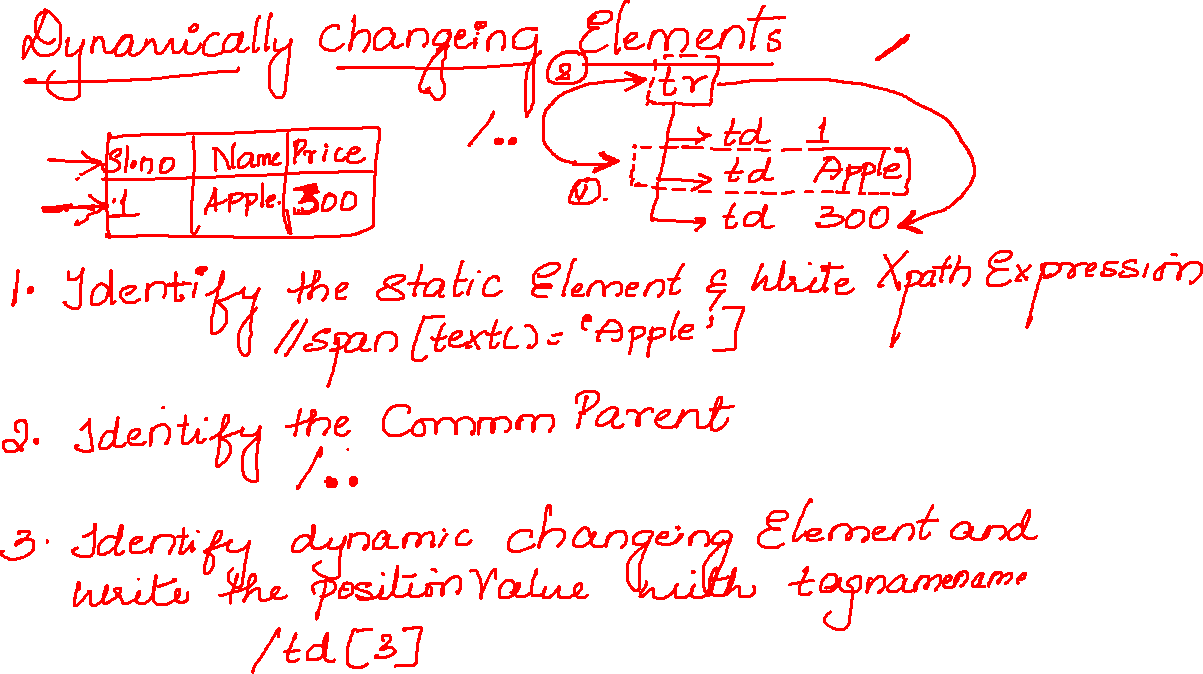 Dynamically changeing Elements
Sl.no Name Price
1 Apple 300
/..
tr
td 1
td Apple
td 300
1. Identify the static Element & Write Xpath Expression
//span[text()='Apple']
2. Identify the Common Parent
/..
3. Identify dynamic changeing Element and
write the position Value with tagnamename
/td[3]